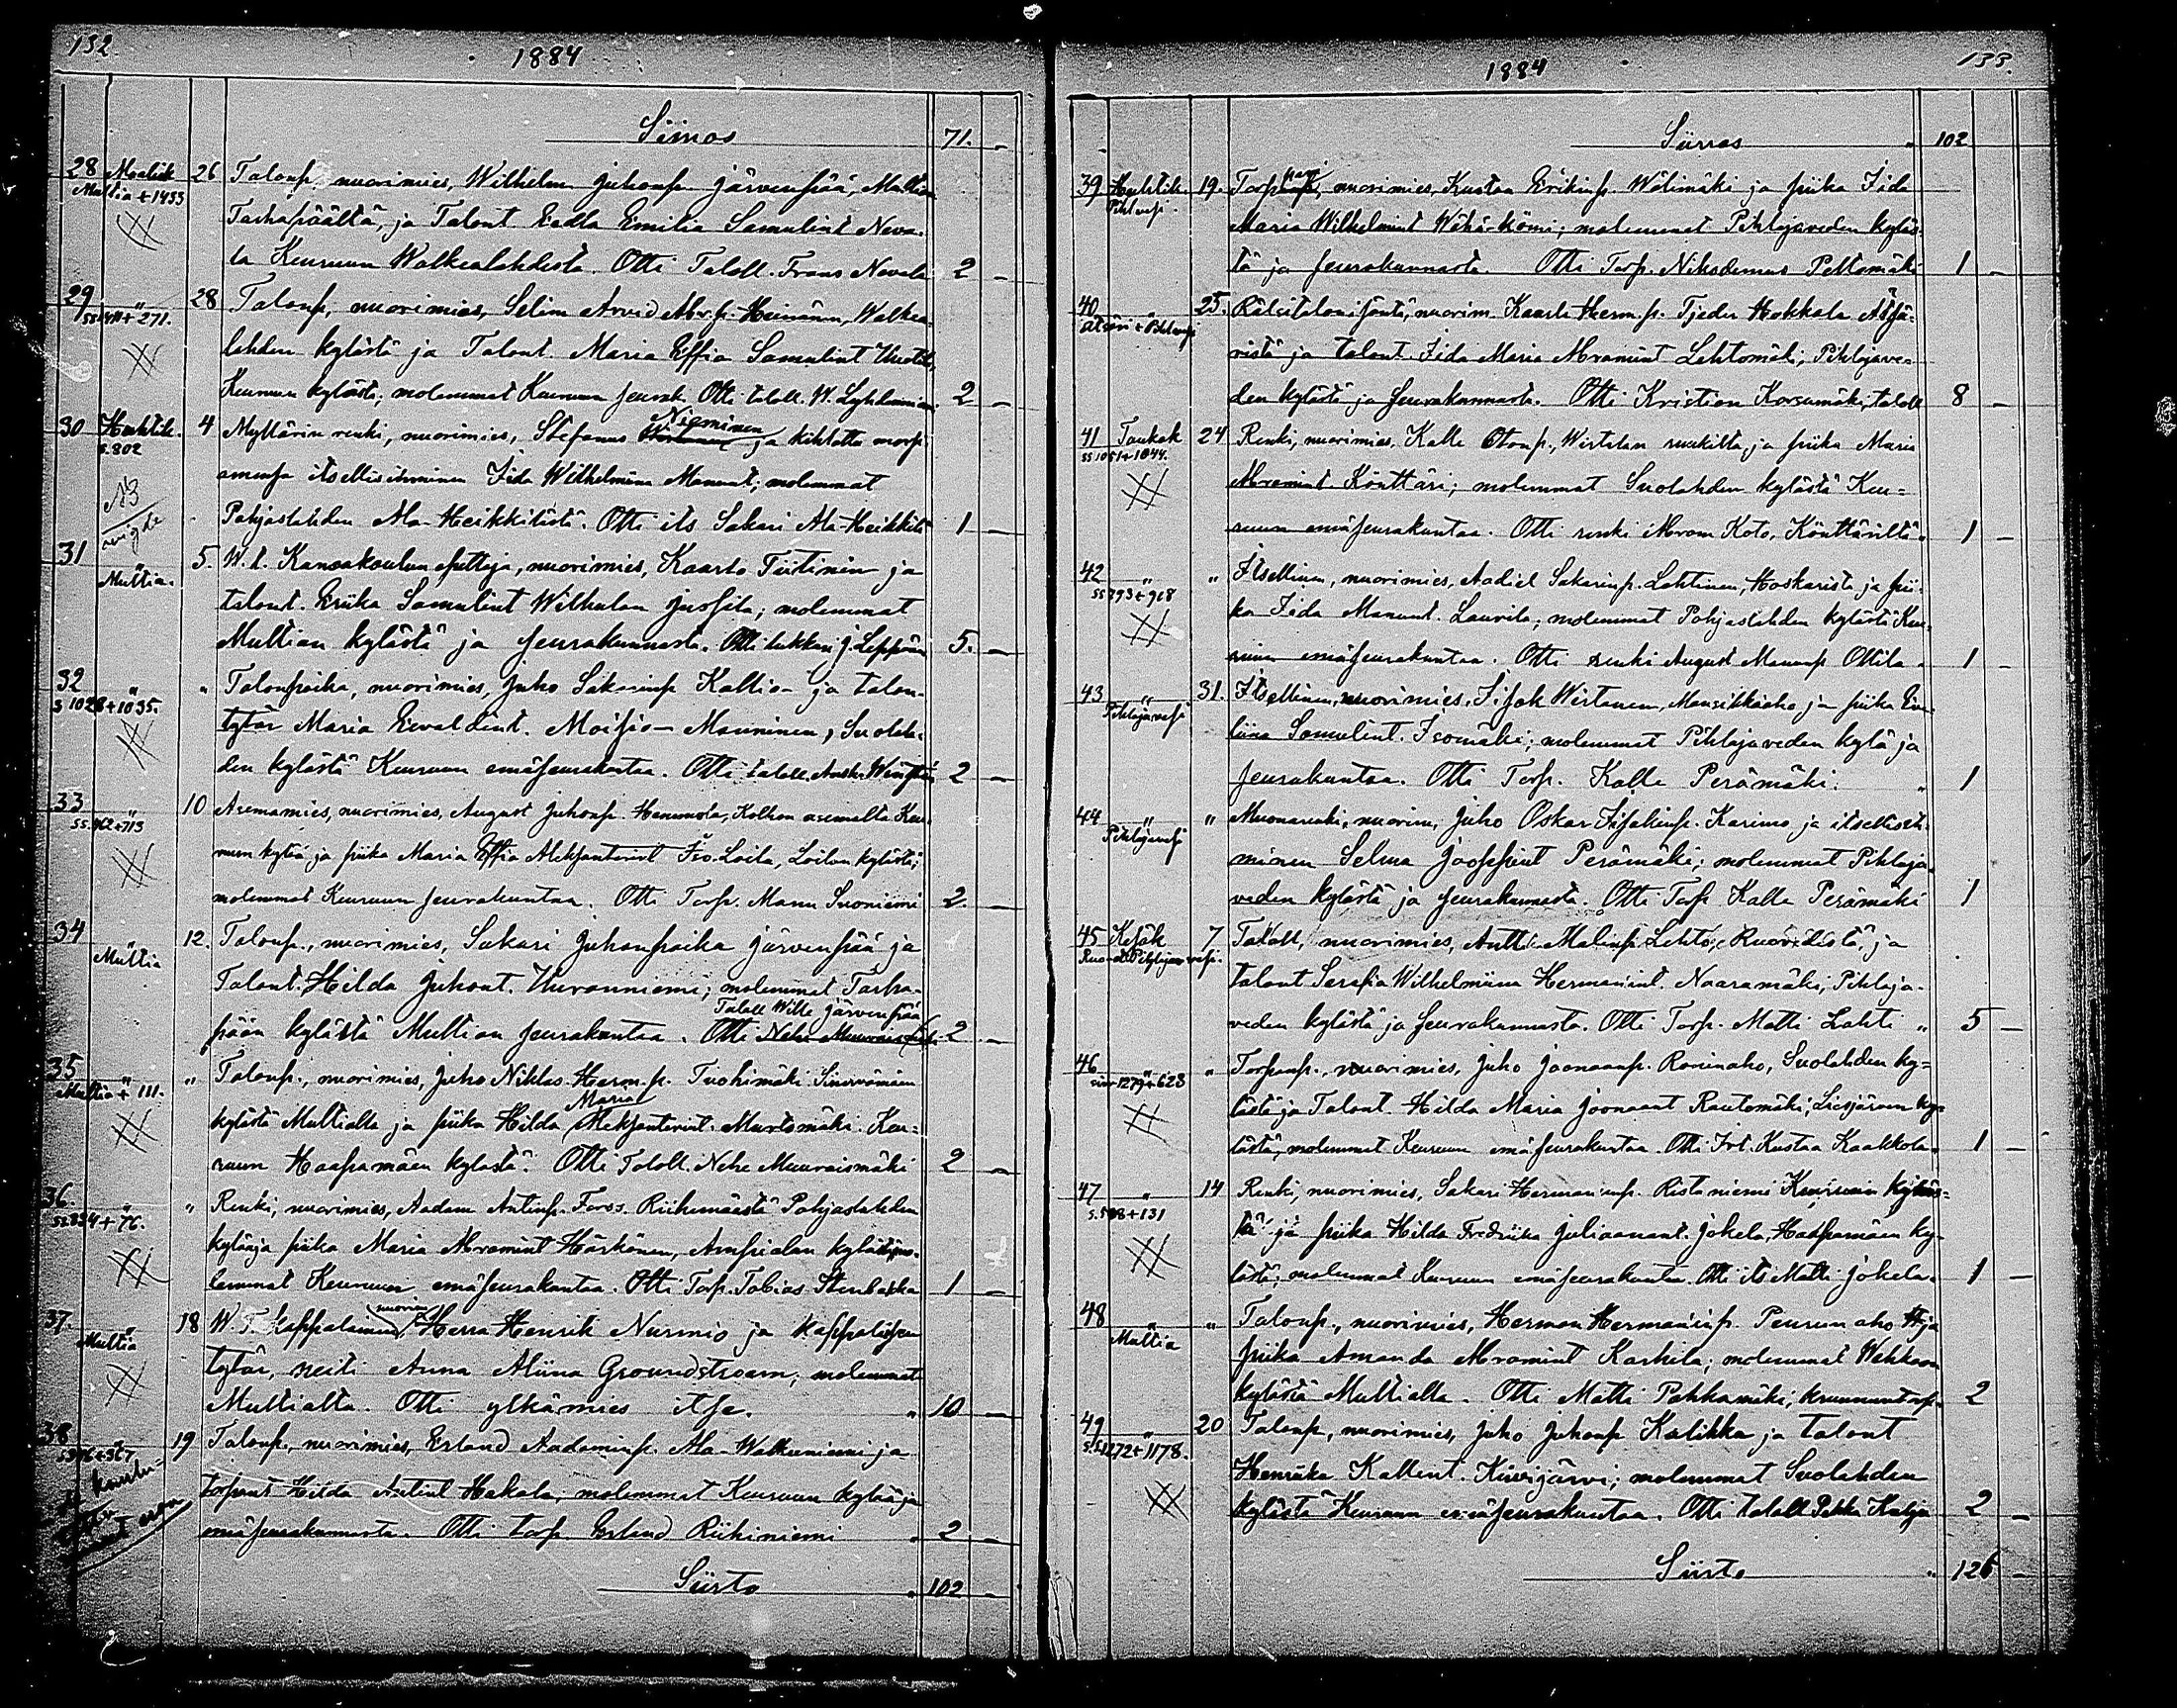 132.
1884
Siirros 71. –
28 Maalisk 26 Talonp. nuorimies, Wilhelm Juhonp Järvenpää, Multian
Multia + 1453
Tarhapäältä, ja Talont. Eedla Emilia Samulint Neva-
la Keuruun Walkealahdesta. Otti Taloll. Frans Nevala 2 –
29 " 28 Talonp, nuorimies, Selim Arvid Abr.p. Heinänen, Walkea-
271.
lahden kylästä ja Talont. Maria Effia Samulint
Keuruun kylästä; molemmat Keuruun seurak. Otti taloll. W. 2 –
30 Huhtik. 4 Myllärin renki, nuorimies, Stefanus Nieminen ja kihlattu morsi-
s. 802
amensa itsellisihminen Iida Wilhelmina Manunt; molemmat
Pohjaslahden Ala-Heikkilästä. Otti its Sakari Ala-Heikkilä 1 –
31 5 W. t. Kansakoulun opettaja, nuorimies, Kaarlo Tiitinen ja
Multia.
talont. Eriika Samulint Wilhulan Jussila; molemmat
Multian kylästä ja seurakunnasta. Otti lukkari J. Leppänen 5. –
32 " " Talonpoika, nuorimies, Juho Sakarinp Kallio- ja talon-
s 1028 + 1035.
tytär Maria Eevaldint. Moisio-Manninen, Suolah-
den kylästä Keuruun emäseurakuntaa. Otti taloll. 2 –
33 " 10 Asemamies, nuorimies, August Juhonp. Hanumola, Kolhon asemalta Keu-
ss. 962+713
ruun kylää ja piika Maria Effia Aleksanterint Iso-Loila, Loilan kylästä;
molemmat Keuruun seurakuntaa. Otti Torp. Manu Suoniemi 2. –
34 " 12. Talonp., nuorimies, Sakari Juhonpoika Järvenpää ja
Multia
Talont. Hilda Juhont. Huranniemi; molemmat Tarha-
Taloll Wille Järvenpää
pään kylästä Multian seurakuntaa. Otti Nehe Muuraismäki 2 –
35 " " Talonp., nuorimies, Juho Niklas Herm.p. Tuohimäki Sinervämäen
Multia + 111.
Maria
kylästä Multialla ja piika Hilda Aleksanterint. Murtomäki. Keu-
ruun Haapamäen kylästä. Otti Taloll. Nehe Muuraismäki 2 –
36 " " Renki, nuorimies, Aadam Antinp. Forss. Riihimäestä Pohjaslahden
ss. 834 + 76.
kylää ja piika Maria Abramint Härkönen, Ampialan kylästä; mo-
lemmat Keuruun emäseurakuntaa. Otti Torp. Tobias Stenbakka 1 –
37. " 18 W. T. Kappalainen, nuorim. Herra Henrik Nurmio ja kappalaisen
Multia
tytär, neiti Anna Aliina Groundstroem; molemmat
Multialta. Otti ylkämies itse. " 10 –
38 " 19 Talonp., nuorimies, Erland Aadaminp. Ala-Walkeeniemi ja
s. 396+367
torpant Hilda Antint Hakala; molemmat Keuruun kylää ja
emäseurakunnasta. Otti torp. Erland Riihiniemi " 2 –
Siirto " 102 –
133.
1884
Siirros " 102
39 Huhtik 19. Torpparinp, nuorimies, Kustaa Erikinp. Wälimäki ja piika Iida
Pihlavesi.
Maria Wilhelmint Wähä-kömi; molemmat Pihlajaveden kyläs-
tä ja seurakunnasta. Otti Torp. Nikodemus Peltomäki 1 –
40 " 25. Rälsitalonisäntä, nuorim. Kaarle Herm.p. Tjeder Hokkola Ätsä-
Ätsäri + Pihlavesi
ristä ja talont. Iida Maria Abramint Lehtomäki; Pihlajave-
den kylästä ja seurakunnasta. Otti Kristian Korsumäki, taloll 8 –
41 Toukok 24 Renki, nuorimies, Kalle Otonp., Wirtalan ruukilta, ja piika Maria
ss 1051+1044.
Abramint. Könttäri; molemmat Suolahden kylästä Keu-
ruun emäseurakuntaa. Otti renki Abram Koto, Könttäriltä " 1 –
42 " " Itsellinen, nuorimies, Aadiel Sakarinp. Lahtinen, Hoskarista ja pii-
ss 793+918
ka Iida Manunt. Laurila; molemmat Pohjaslahden kylästä Keu-
ruun emäseurakuntaa. Otti renki August Manunp Ollila " 1 –
43 " 31. Itsellinen, nuorimies, Iisak Wirtanen, Mansikkaaho ja piika Eve-
Pihlajavesi
liina Samulint. Isomäki; molemmat Pihlajaveden kylä ja
seurakuntaa. Otti Torp. Kalle Perämäki. " 1
44 " " Muonarenki, nuorim, Juho Oskar Iisakinp. Karimo ja itsellisih-
Pihlajavesi
minen Selma Jooppint Perämäki; molemmat Pihlaja-
veden kylästä ja seurakunnasta. Otti Torp Kalle Perämäki 1
45 Kesäk 7 Taloll, nuorimies, Antti Malinp. Lehto, Ruovedistä, ja
talont Serafia Wilhelmiina Hermanint. Naaramäki, Pihlaja-
veden kylästä ja seurakunnasta. Otti Torp. Matti Lahti " 5 –
46 " " Torpanp., nuorimies, Juho Joonaanp. Roninaho, Suolahden ky-
1279+623
lästä ja Talont. Hilda Maria Joonaant Rautomäki, Liesjärven ky-
lästä, molemmat Keuruun emäseurakuntaa. Otti Irt. Kustaa Kaakkola " 1 –
47 " 14 Renki, nuorimies, Sakari Hermaninp. Ristaniemi Keuruun kyläs-
s. 598+131
tä ja piika Hilda Fredriika Juliaanant. Jokela, Haapamäen ky-
lästä; molemmat Keuruun emäseurakuntaa. Otti its Matti Jokela " 1 –
48 " " Talonp., nuorimies, Herman Hermaninp. Peurunaho ja
Multia
piika Amanda Abramint Karhila; molemmat Wehkaan
kylästä Multialla. Otti Matti Pohkamäki, kruununtorp. 2
49 " 20 Talonp, nuorimies, Juho Juhonp Kalikka ja talont
s.s. 1272+1178.
Henriika Kallent. Kiwijärvi; molemmat Suolahden
kylästä Keuruun emäseurakuntaa. Otti taloll Pekka 2 –
Siirto " 126 –